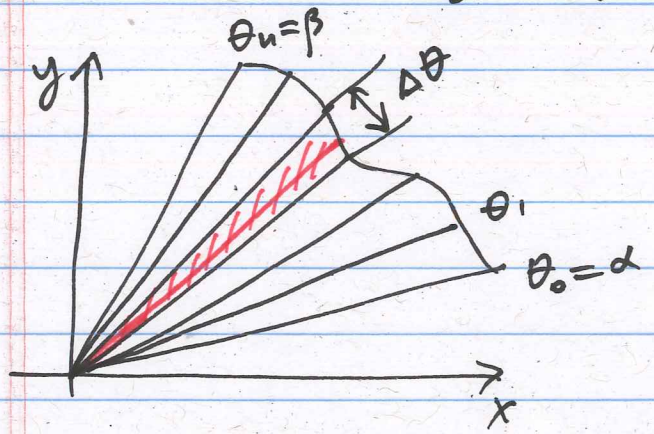 θn=β
y
Δθ
θ1
θ0=α
x